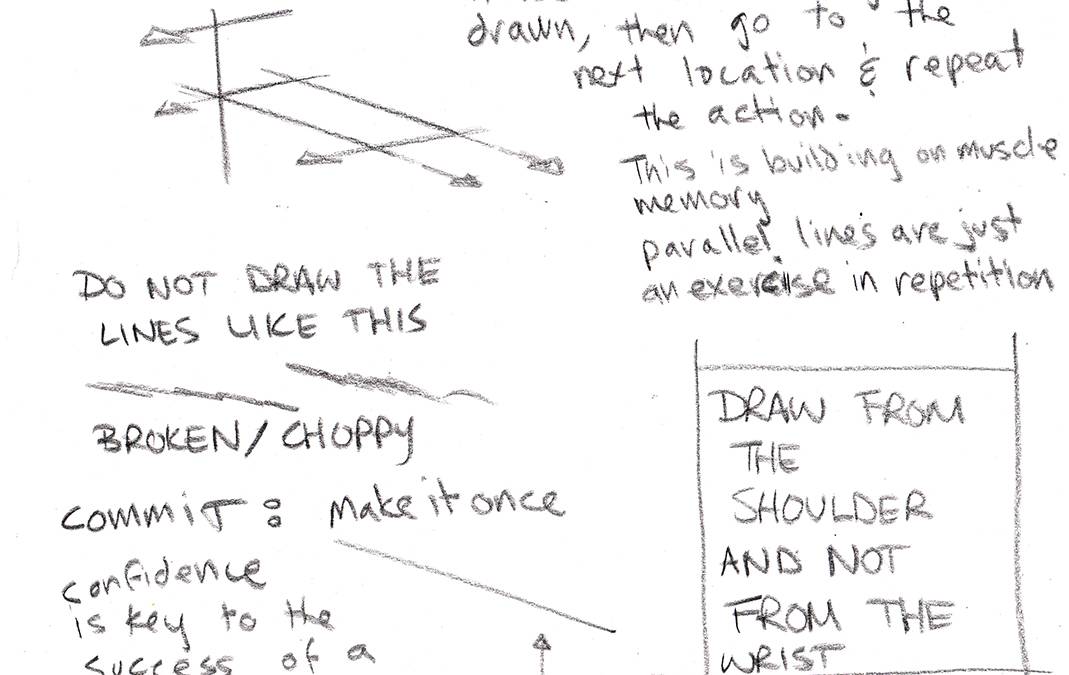 drawn, then go to the
next location & repeat
the action.
This is building on muscle
memory
parallel lines are just
an exercise in repetition
DO NOT DRAW THE
LINES LIKE THIS
BROKEN/CHOPPY
commit: make it once
confidence
is key to the
success of a
DRAW FROM
THE
SHOULDER
AND NOT
FROM THE
WRIST